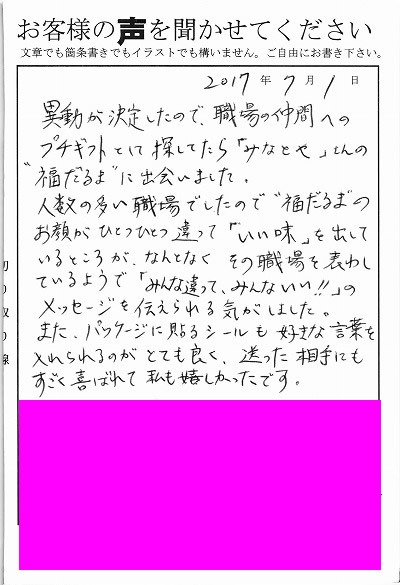 お客様の声を聞かせてください
文章でも箇条書きでもイラストでも構いません。ご自由にお書き下さい。
2017年7月1日
異動が決定したので、職場の仲間への
プチギフトとして探してたら「みなとや」さんの
"福だるま"に出会いました。
人数の多い職場でしたので"福だるま"の
お顔がひとつひとつ違って「いい味」を出して
いるところが、なんとなく その職場を表わし
ているようで「みんな違って、みんないい!!」の
メッセージを伝えられる気がしました。
また、パッケージに貼るシールも好きな言葉を
入れられるのがとても良く、送った相手にも
すごく喜ばれて私も嬉しかったです。
切り取り線